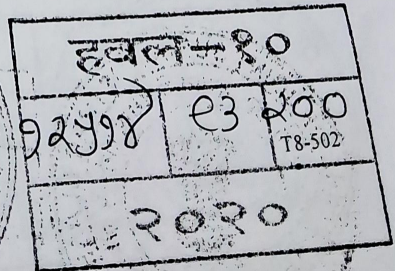 हवल-१०
१२५१४ ९३ २००
T8-502
२०२०